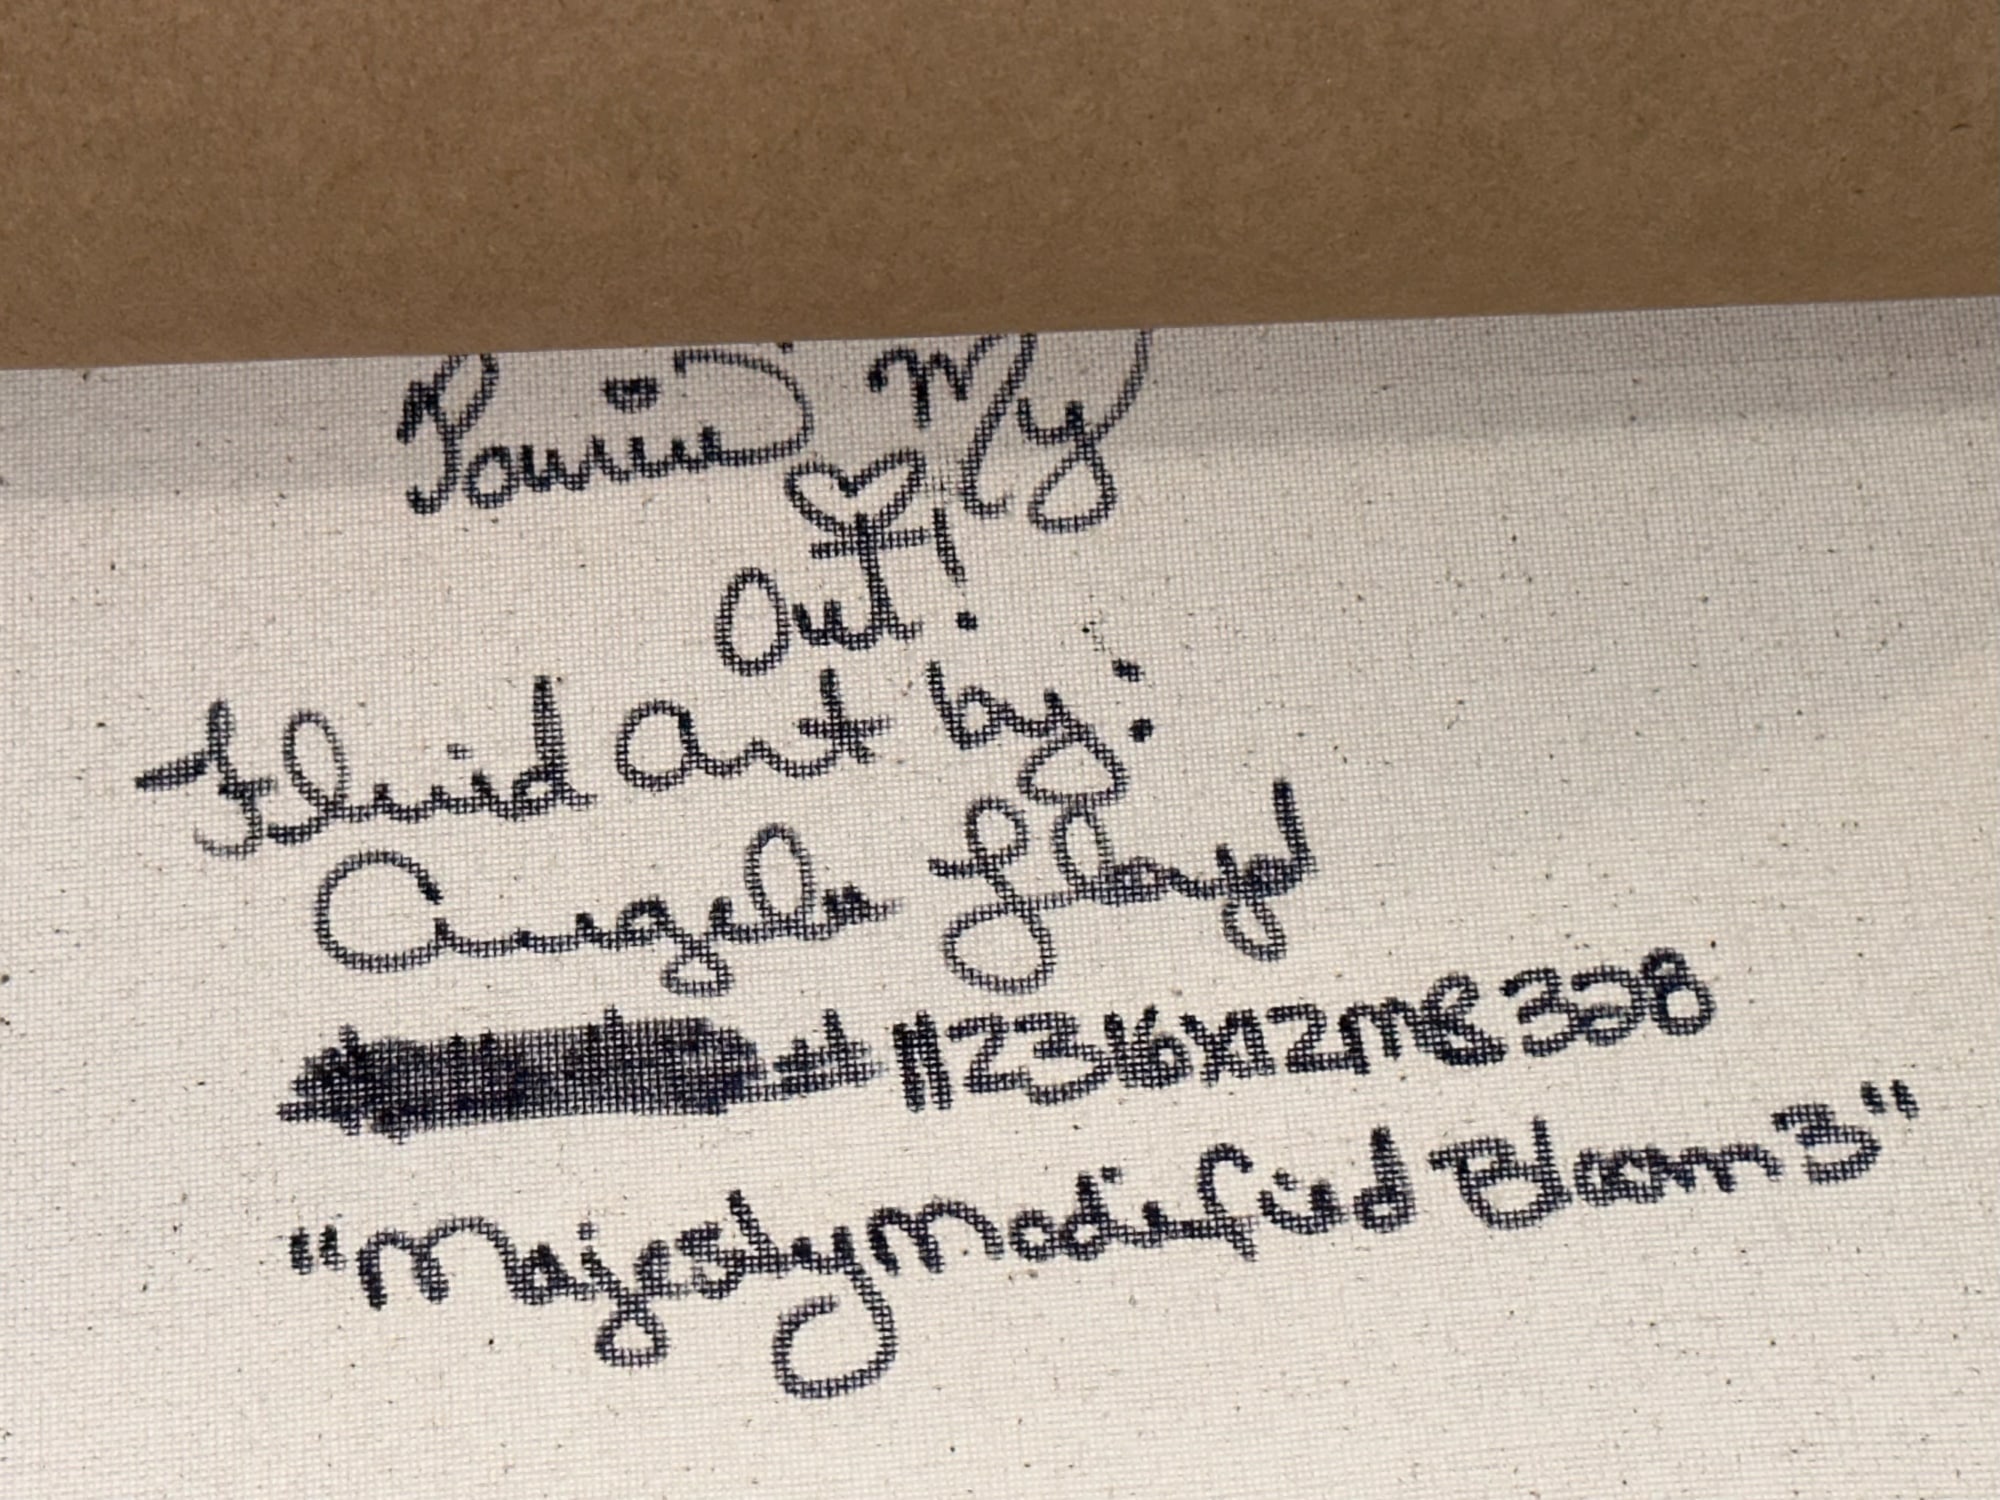 Pouring My
♡
Out!
Fluid Art by:
Angela Lloyd
#112316X12MB328
"Majesty Modified Bloom 3"